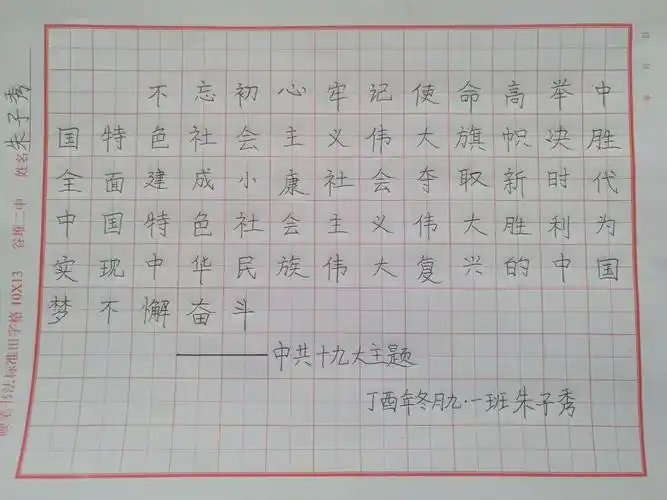 不忘初心牢记使命高举中
国特色社会主义伟大旗帜决胜
全面建成小康社会夺取新时代
中国特色社会主义伟大胜利为
实现中华民族伟大复兴的中国
梦不懈奋斗
——中共十九大主题
丁酉年冬月九·一班朱子秀
硬笔书法标准田字格 10X13 谷堆二中 姓名 朱子秀